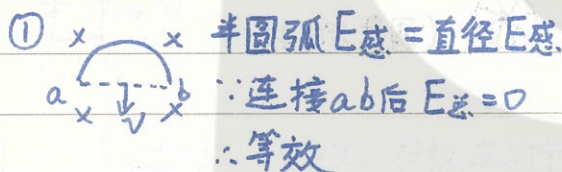 ① × × 半圆弧E感=直径E感
a × v × b ∵连接ab后E总=0
∴等效